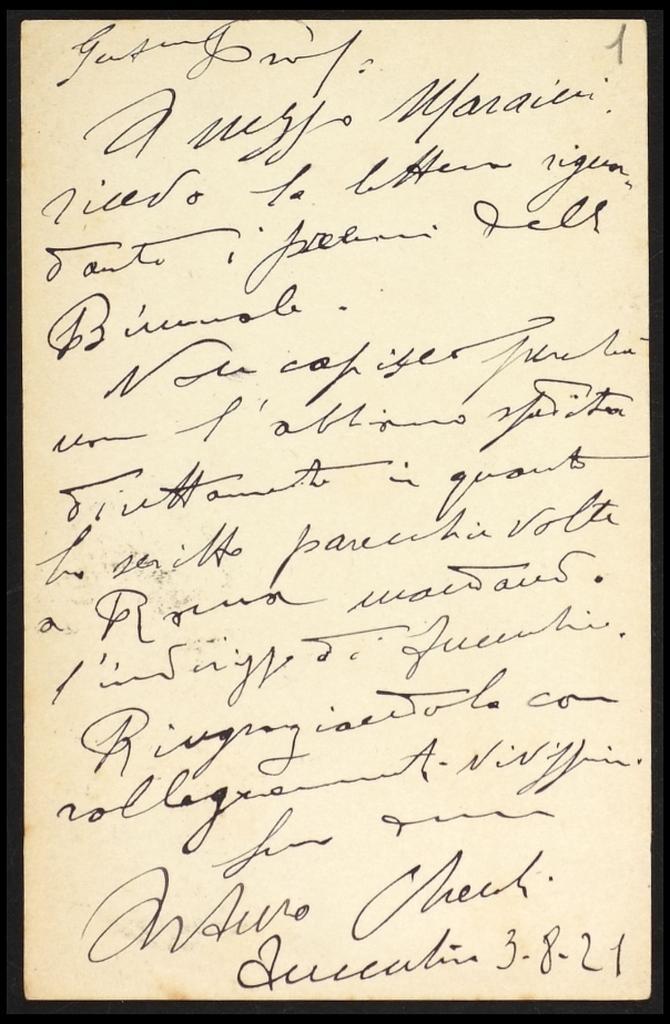 1
Prof.
A mezzo Maraini
ricevo la lettera riguar-
dante i premi della
Biennale.
Non capisco perché
non l'abbiano spedita
direttamente in quanto
ho scritto parecchie volte
a Roma mandando
l'indirizzo di
Ringraziandola con
rallegramenti vivissimi
suo
Arturo Checchi
3-8-21